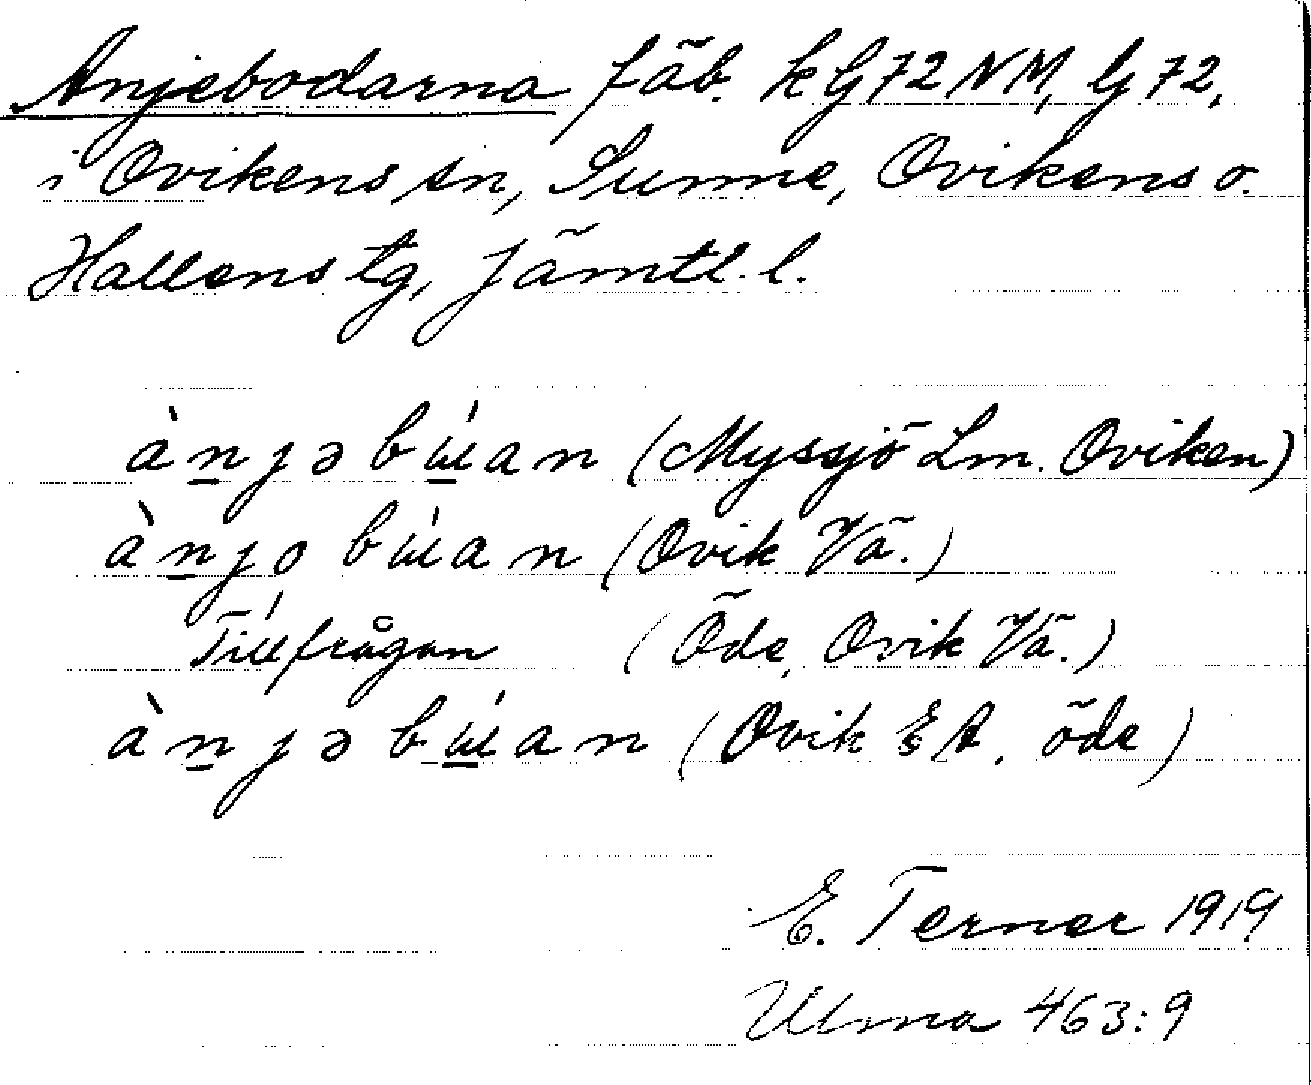 Anjebodarna fäb. kG72NM, G72,
i Ovikens sn, Sunne, Ovikens o.
Hallens tg, Jämtl. l.
àn̲jəbu̲̍ı̍an (Myssjö Lm. Oviken)
àn̲jo bu̍ı̍an (Ovik Vä.)
Tillfrågan (Öde, Ovik Vä.)
àn̲jəbu̲̍ı̍an (Ovik EA. öde)
E. Terner 1919
Ulma 463:9